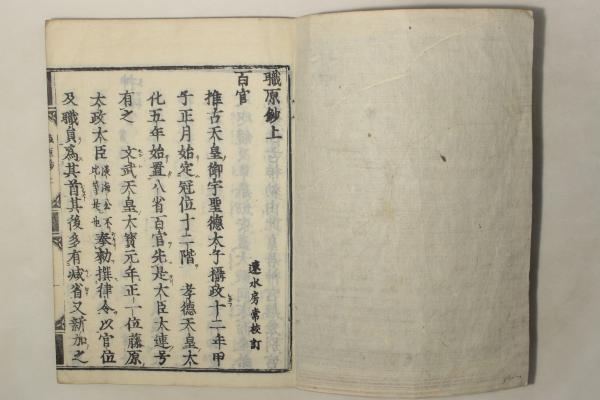 職原鈔上
百官
遠水房常校訂
推古天皇御宇聖德太子攝政十二年甲
子正月始定冠位十二階 孝德天皇大
化五年始置八省百官先是大臣大連号
有之 文武天皇大寶元年正一位藤原
太政大臣淡海公不比等是也奉勅撰律令以官位
及職員爲其首其後多有减省又新加之